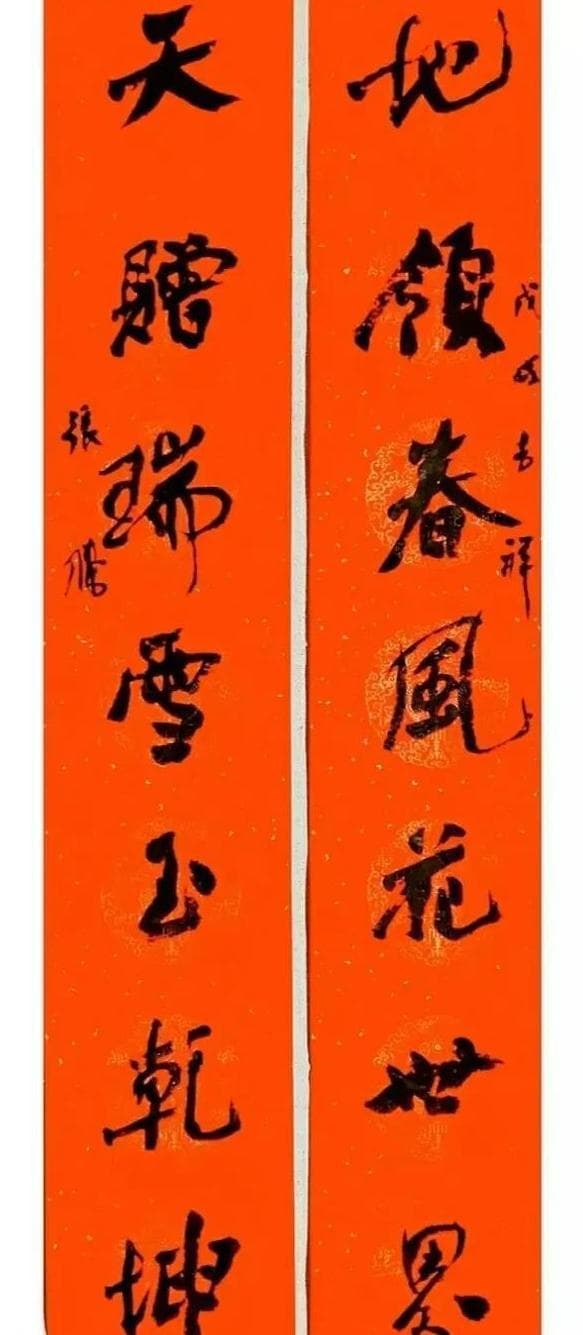 地領春風花世界
戊戌吉祥
天贈瑞雪玉乾坤
張